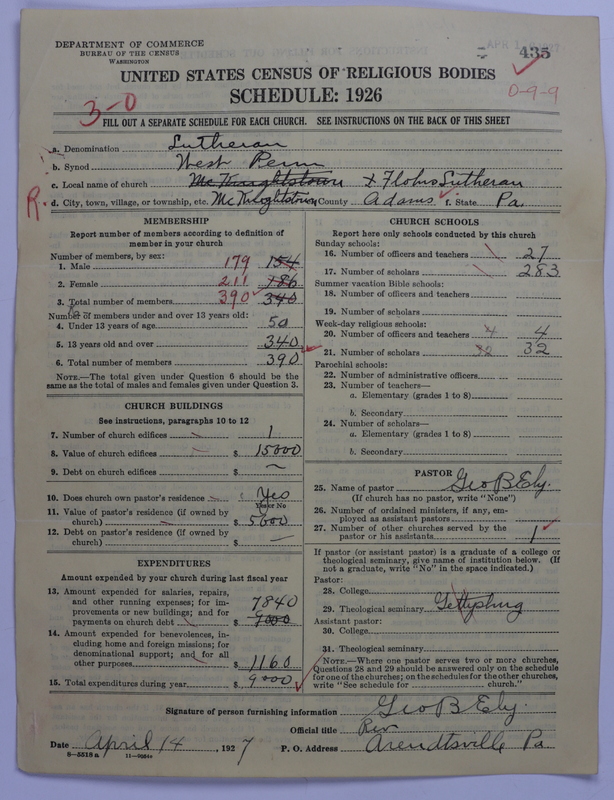 DEPARTMENT OF COMMERCE
BUREAU OF THE CENSUS
WASHINGTON
435
UNITED STATES CENSUS OF RELIGIOUS BODIES
SCHEDULE: 1926
0-9-9
3-0
FILL OUT A SEPARATE SCHEDULE FOR EACH CHURCH. SEE INSTRUCTIONS ON THE BACK OF THIS SHEET
a. Denomination Lutheran
b. Synod West Penn
c. Local name of church McKnightstown + Flohrs Lutheran
R. d. City, town, village, or township, etc. McKnightstown County Adams f. State Pa.
MEMBERSHIP
Report number of members according to definition of
member in your church
Number of members, by sex:
1. Male 179 154
2. Female 211 186
3. Total number of members 390 340
Number of members under and over 13 years old:
4. Under 13 years of age 50
5. 13 years old and over 340
6. Total number of members 390
NOTE.—The total given under Question 6 should be
same as the total of males and females given under Question 3.
CHURCH BUILDINGS
See instructions, paragraphs 10 to 12
7. Number of church edifices 1
8. Value of church edifices $ 15000
9. Debt on church edifices $ ~
10. Does church own pastor's residence Yes
Yes or No
11. Value of pastor's residence (if owned by
church) $ 5000
12. Debt on pastor's residence (if owned by
church) $ —
EXPENDITURES
Amount expended by your church during last fiscal year
13. Amount expended for salaries, repairs,
and other running expenses; for im-
provements or new buildings; and for
payments on church debt $ 7840 7000
14. Amount expended for benevolences, in-
cluding home and foreign missions; for
denominational support; and for all
other purposes $ 1160
15. Total expenditures during year $ 9000
CHURCH SCHOOLS
Report here only schools conducted by this church
Sunday schools:
16. Number of officers and teachers 27
17. Number of scholars 283
Summer vacation Bible schools:
18. Number of officers and teachers
19. Number of scholars
Week-day religious schools:
20. Number of officers and teachers 4 4
21. Number of scholars 32
Parochial schools:
22. Number of administrative officers
23. Number of teachers—
a. Elementary (grades 1 to 8)
b. Secondary
24. Number of scholars—
a. Elementary (grades 1 to 8)
b. Secondary
PASTOR
25. Name of pastor Geo B Ely.
(If church has no pastor, write "None")
26. Number of ordained ministers, if any, em-
ployed as assistant pastors
27. Number of other churches served by the
pastor or his assistants 1
If pastor (or assistant pastor) is a graduate of a college or
theological seminary, give name of institution below. (If
not a graduate, write "No" in the space indicated.)
Pastor:
28. College
29. Theological seminary Gettysburg
Assistant pastor:
30. College
31. Theological seminary
NOTE.—Where one pastor serves two or more churches,
Questions 28 and 29 should be answered only on the schedule
for one of the churches; on the schedules for the other churches,
write "See schedule for church."
Signature of person furnishing information Geo B Ely.
Official title Rev
Date April 14, 1927 P. O. Address Arendtsville Pa
8-5518 a